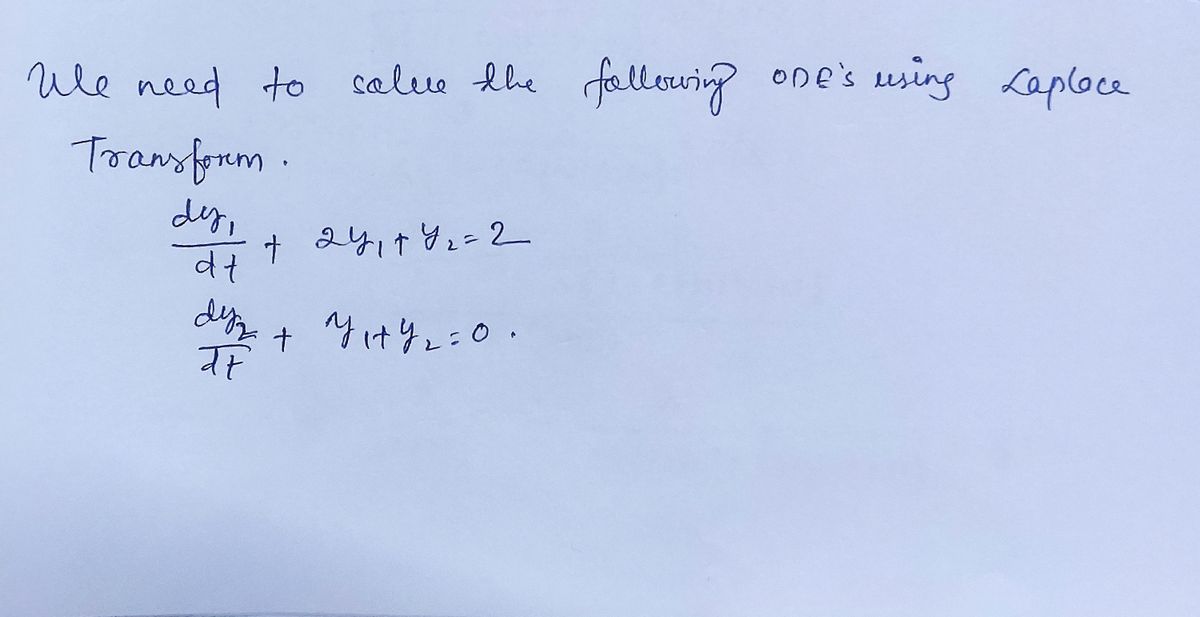 We need to solve the following ODE's using Laplace
Transform.
dy₁/dt + 2y₁ + y₂ = 2
dy₂/dt + y₁ + y₂ = 0.